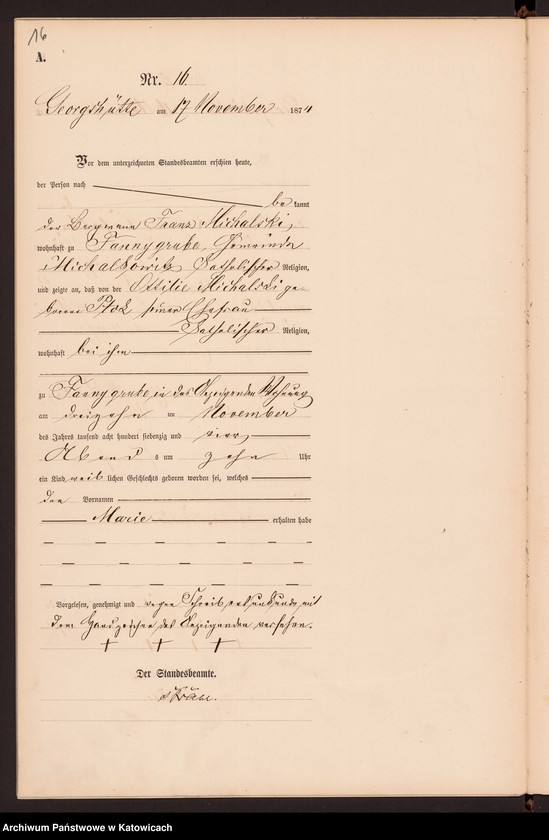 16
A.
Nr. 16.
Georgshütte am 17 November 1874
Vor dem unterzeichneten Standesbeamten erschien heute,
der Person nach
be kannt
der Bergmann Franz Michalski,
wohnhaft zu Fannygrube, Gemeinde
Michalkowitz katholischer Religion,
und zeigte an, daß von der Ottilie Michalski ge
borene seiner Ehefrau
katholischer Religion,
wohnhaft bei ihm
zu Fannygrube in des Anzeigenden Wohnung
am dreizehn ten November
des Jahres tausend acht hundert siebenzig und vier
Abend s um zehn Uhr
ein Kind weib lichen Geschlechts geboren worden sei, welches
den Vornamen
Marie erhalten habe
Vorgelesen, genehmigt und wegen Schreibensunkunde mit
dem Handzeichen des Anzeigenden versehen.
+ + +
Der Standesbeamte.
Archiwum Państwowe w Katowicach